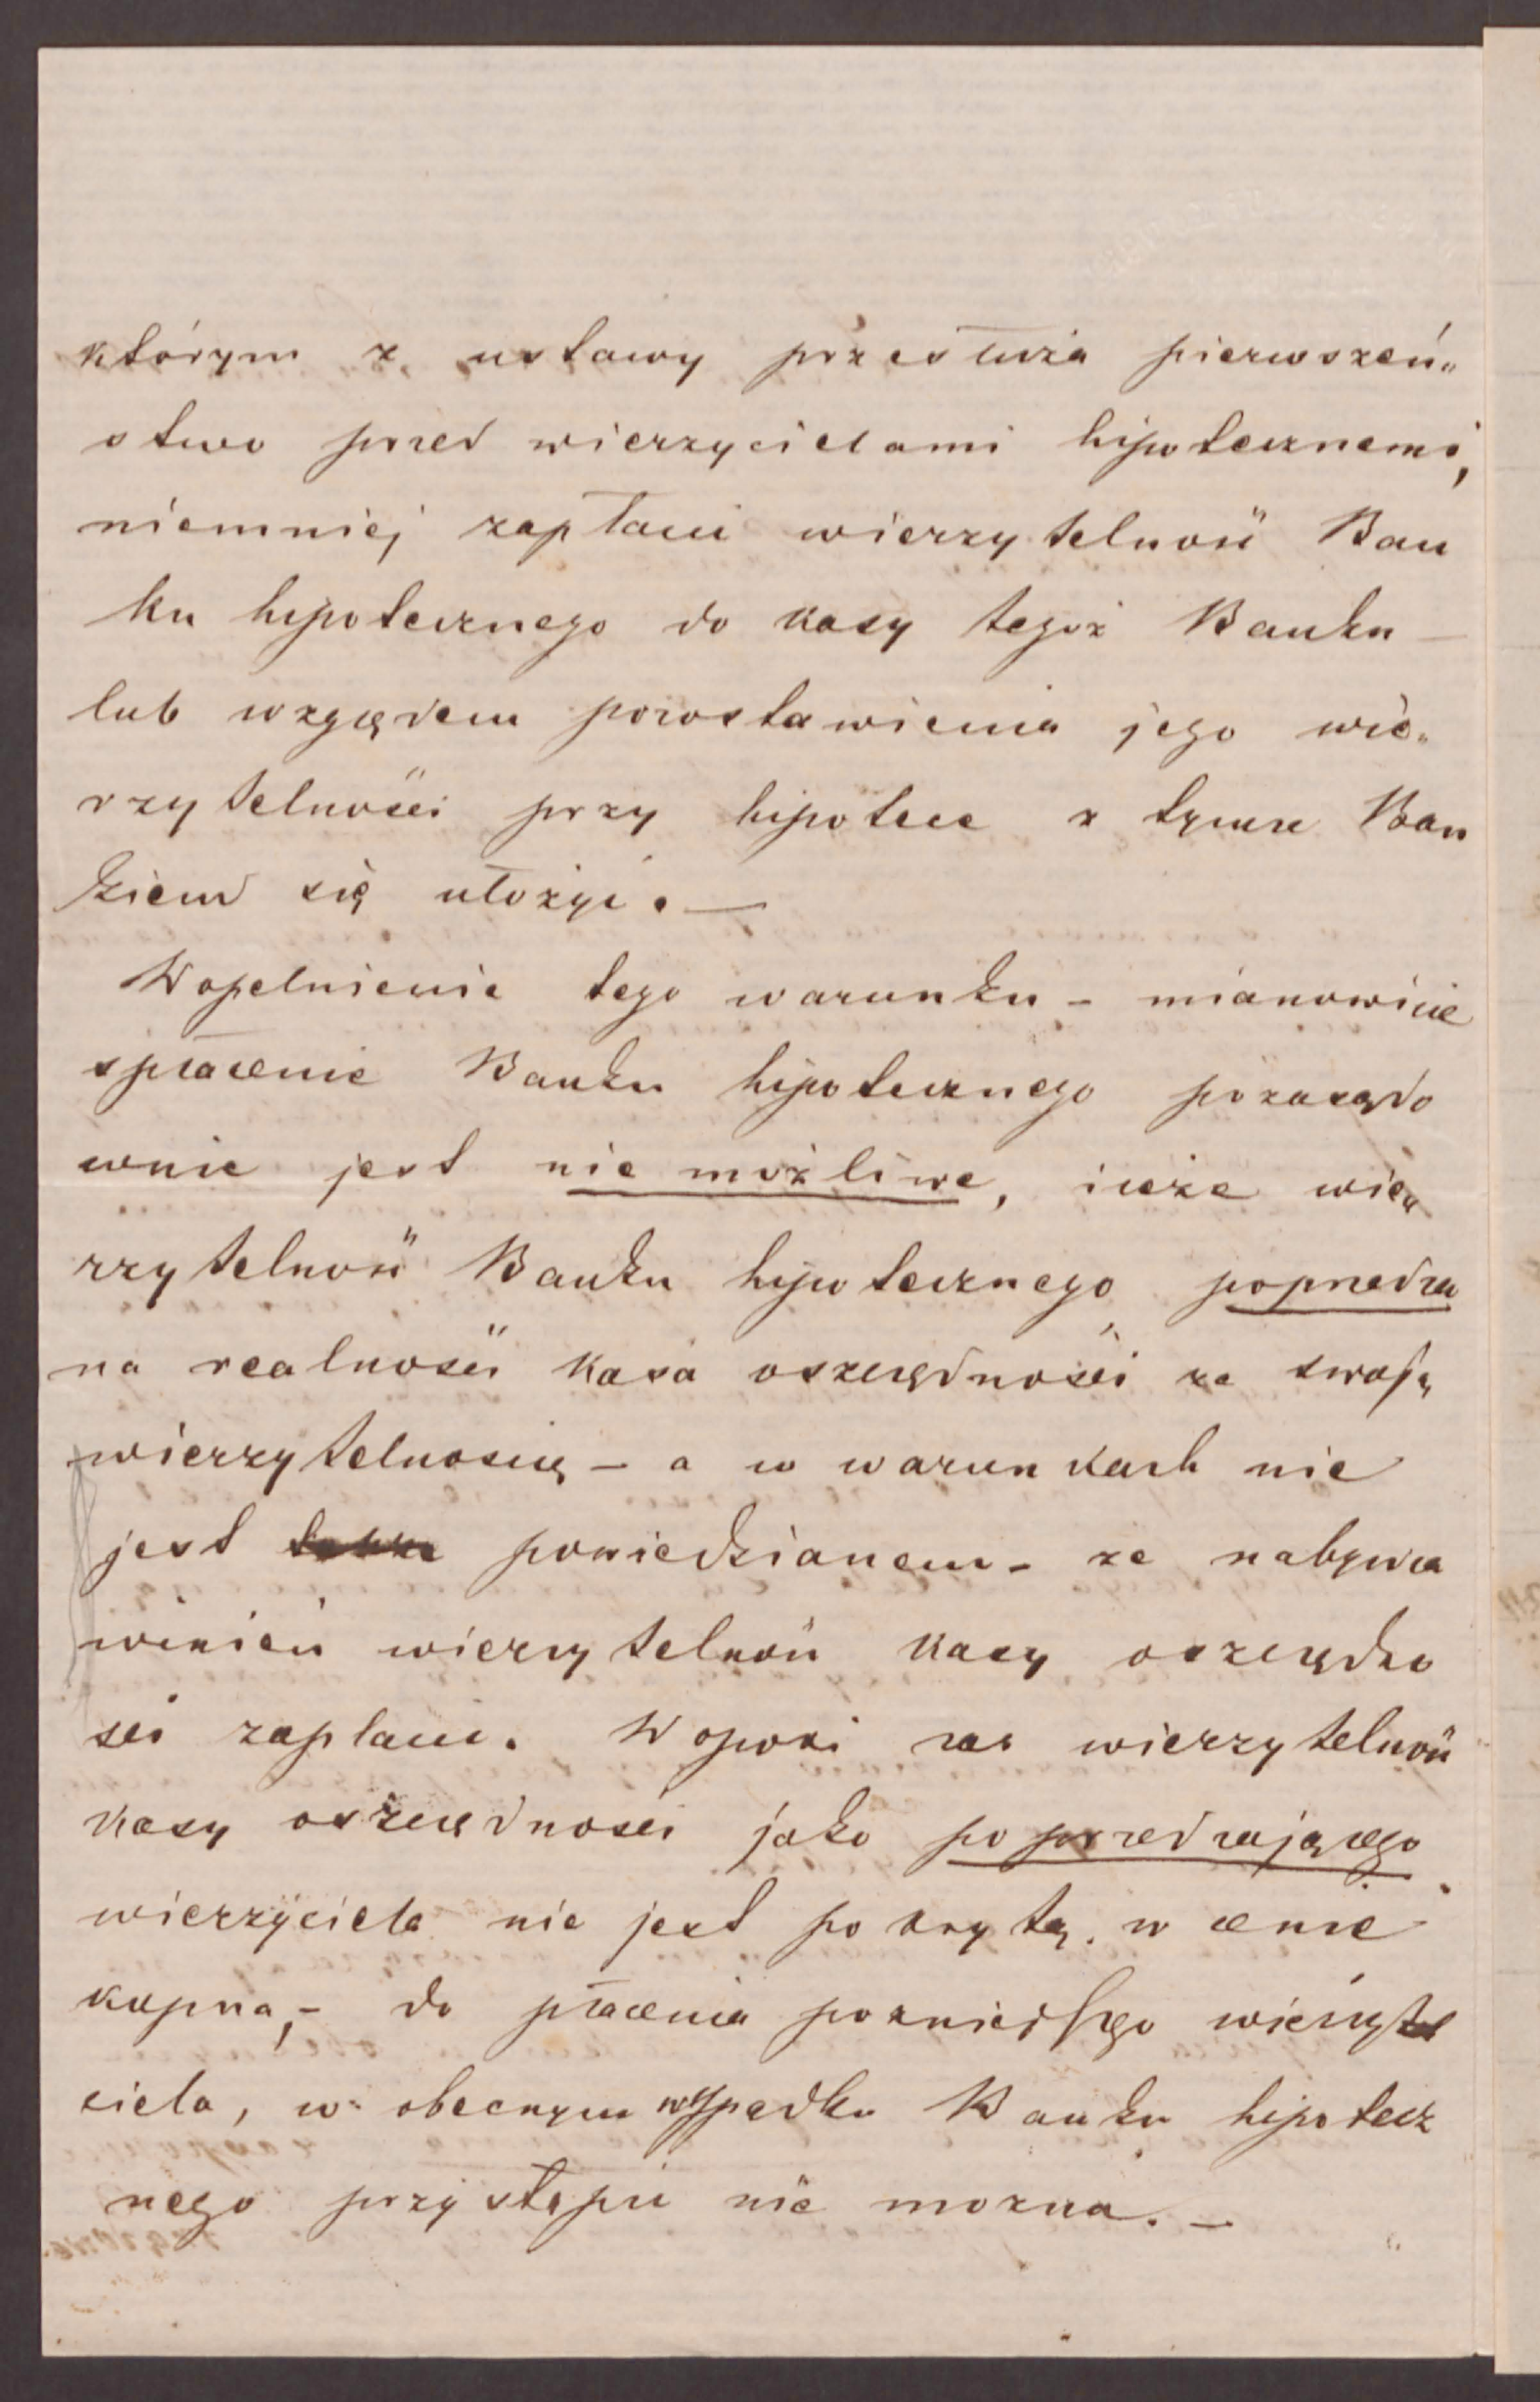 którym z ustawy przesłuża pierwszeń„
stwo przed wierzycielami hipotecznemi,
niemniej zapłacić wierzytelność Ban
ku hipotecznego do kasy tegoż Banku —
lub względem pozostawienia jego wie„
rzytelności przy hipotece z tymże Ban
kiem się ułożyć. —
Wopełnienie tego warunku – mianowicie
spłacenie Banku hipotecznego pozasądo
wnie jest nie możliwe, iż że wie„
rzytelność Banku hipotecznego poprzedza
na realności kasa oszczędności ze swoją
wierzytelnością – a w warunkach nie
jest powiedzianem – że nabywca
winień wierzytelność kasy oszczędno
ści zaplacić. Wopoki zaś wierzytelność
kasy oszczędności jako poprzedzającego
wierzyciela nie jest pokrytą w cenie
kupna, – do płacenia pozniejszego wierzy
ciela, w obecnym wypadku Banku hipotecz
nego przystąpić nie mozna. —